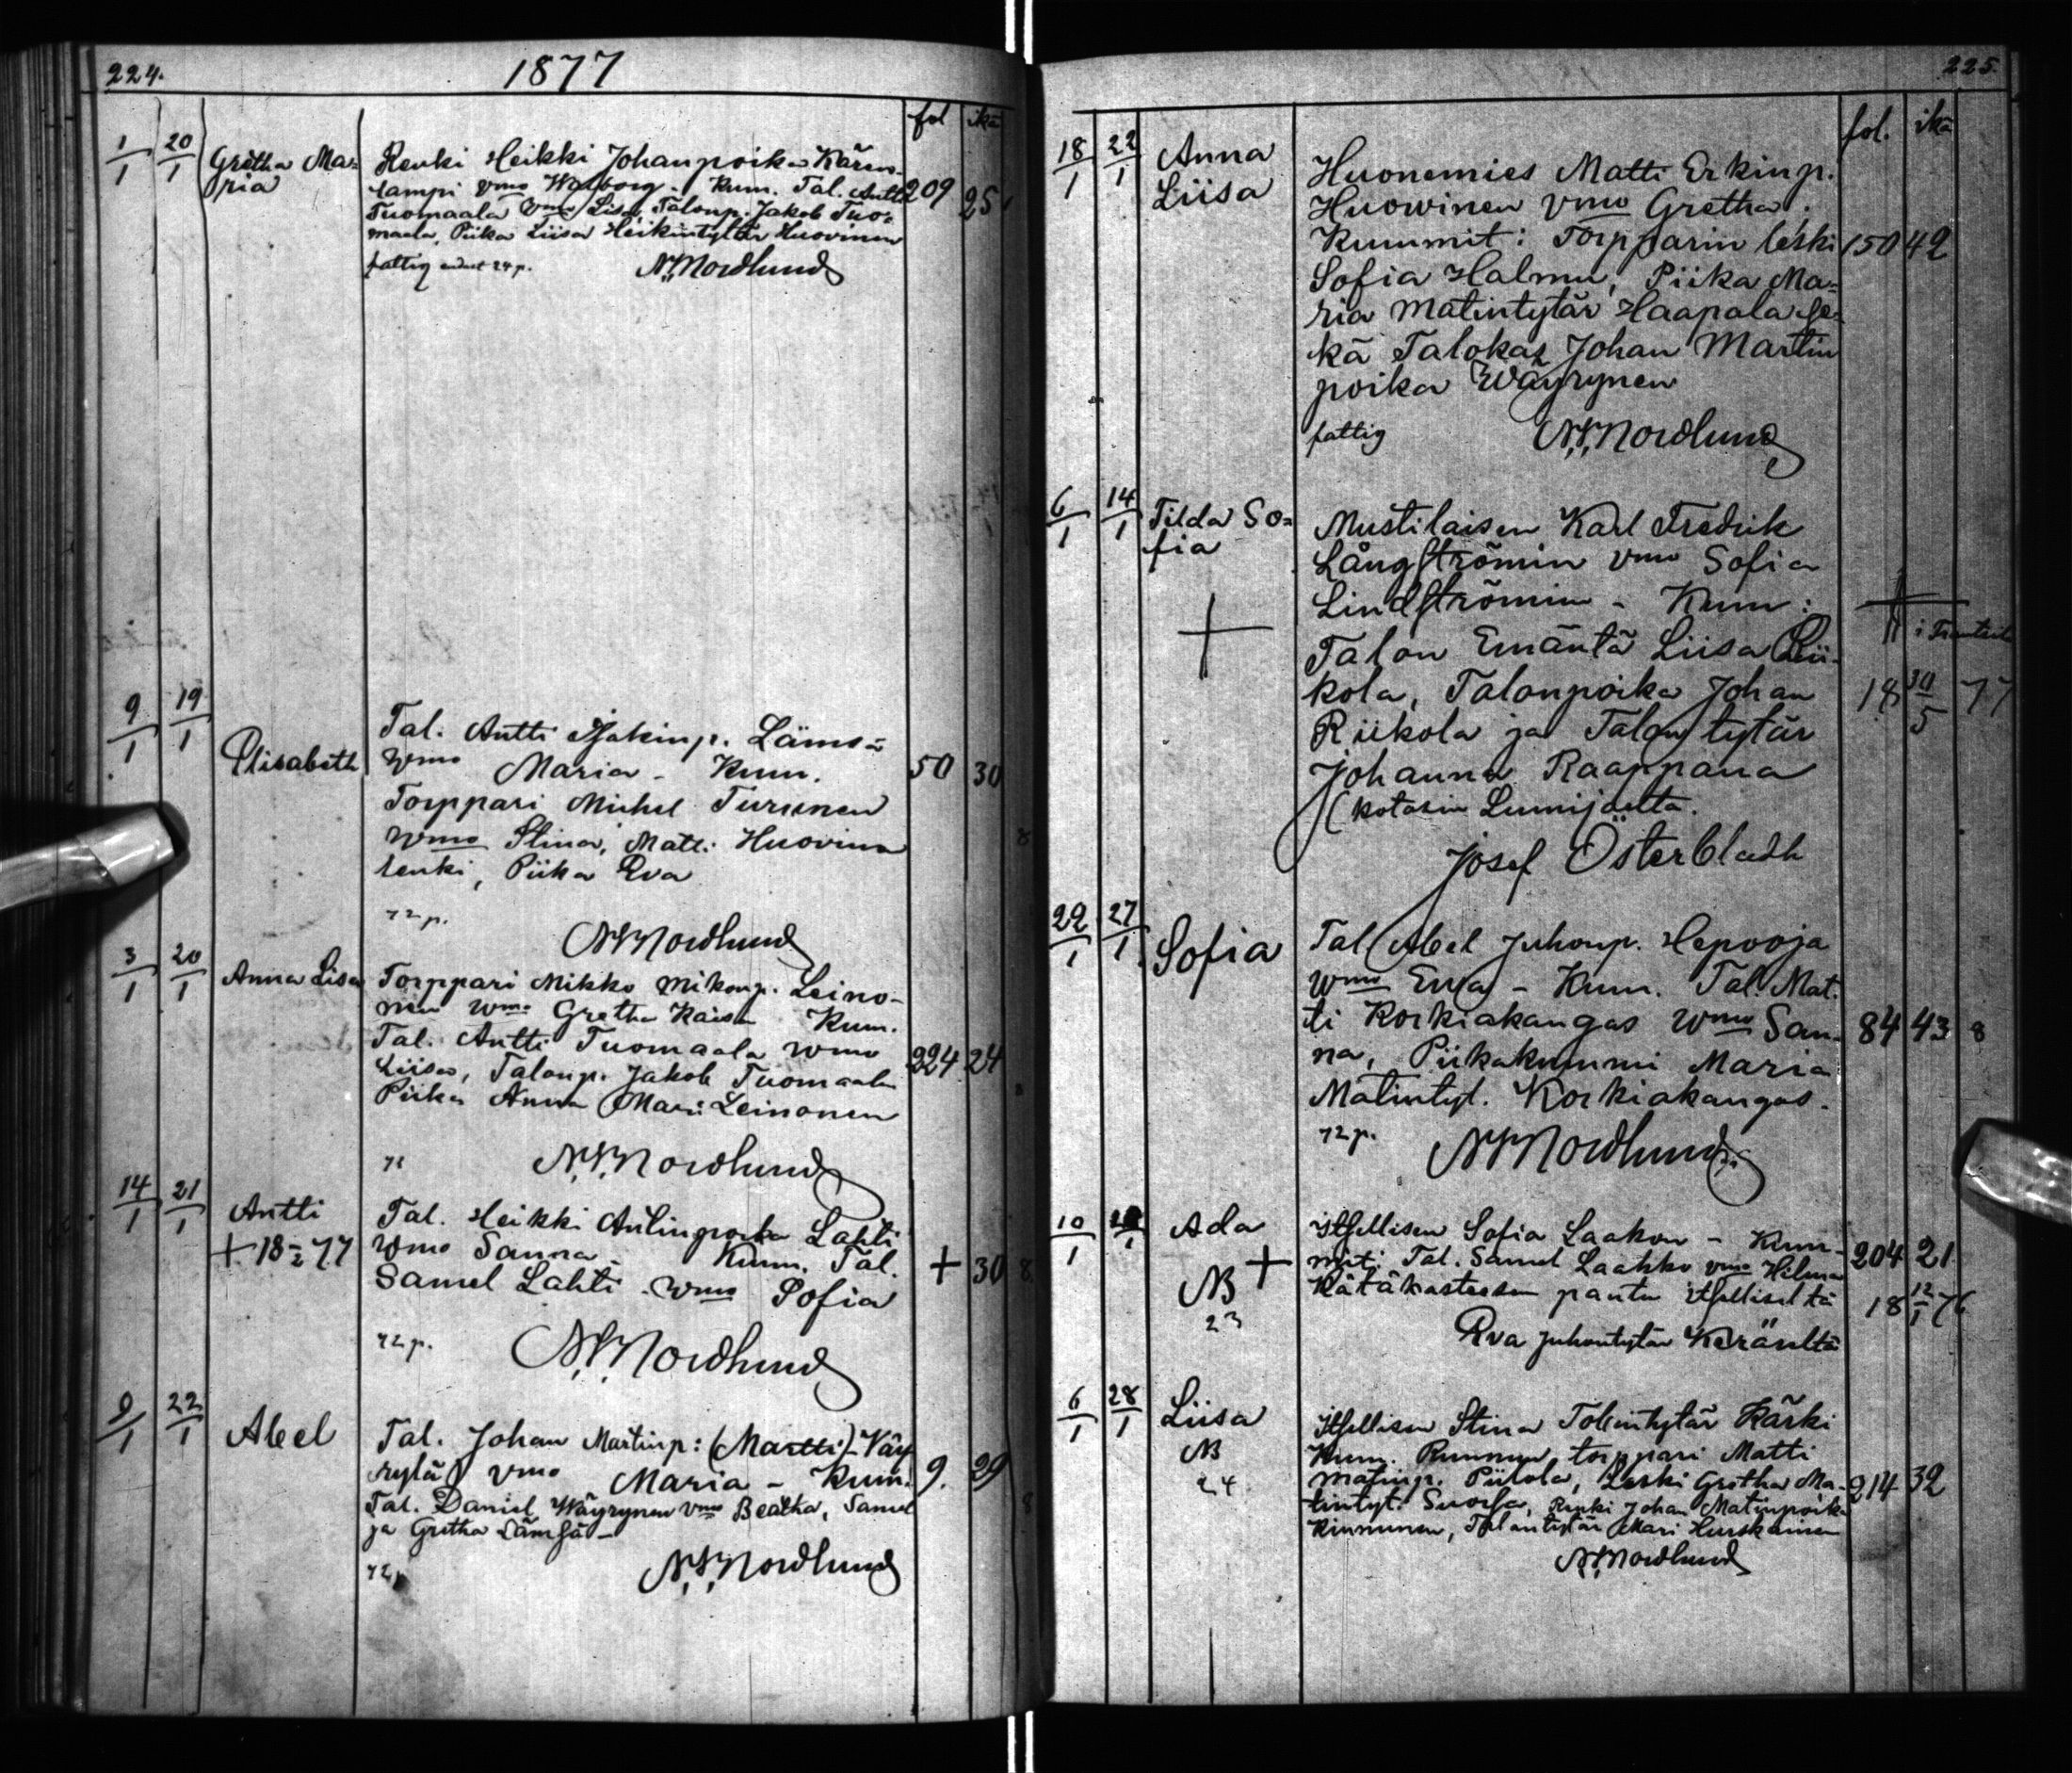 224.
1877
fol ikä
1/1 20/1 Gretha Ma=
ria
Renki Heikki Johanpoika Kären-
lampi vmo Walborg - Kum. Tal. Antti
Tuomaala Vmo Lisa, Talonp. Jakob Tuo=
maala, Piika Liisa Heikintytär Huovinen
209 25
fattig 24 p. N.S. Nordlund
9/1 19/1 Elisabeth
Tal. Antti Isakinp. Lämsä
Wmo Maria - Kum. 50 30
Torppari Michel Turunen
Wmo Stina, Matti Huovinen
renki, Piika Eva
72 p.
N.S. Nordlund
3/1 20/1 Anna Lisa
Torppari Mikko Mikonp. Leino-
nen Wmo Gretha Kaisa Kum.
Tal. Antti Tuomaala Wmo
Liisa, Talonp. Jakob Tuomaala 224 24
Piika Anna Mari Leinonen
72
N.S. Nordlund
14/1 21/1 Antti
+ 18 2/2 77
Tal. Heikki Antinpoika Lahti
Wmo Sanna - Kum. Tal. + 30 8.
Samel Lahti - Wmo Sofia
72 p.
N.S. Nordlund
9/1 22/1 Abel
Tal. Johan Martinp: (Martti) Väy
rylä vmo Maria - Kum. 9. 29
Tal. Daniel Wäyrynen vmo Beatha, Samel
ja Gretha Lämsä -
8
72 p
N.S. Nordlund
225.
fol. ikä
18/1 22/1 Anna
Liisa
Huonemies Matti Erkinp.
Huowinen Vmo Gretha.
Kummit: Torpparin leski 150 42
Sofia Halmu, Piika Ma=
ria Matintytär Haapala se=
kä Talokas Johan Martin
poika Wäyrynen
fattig N.S. Nordlund
6/1 14/1 Tilda So=
fia
+
Mustilaisen Karl Fredrik
Långströmin vmo Sofia
Lindströmin - Kum:
Talon Emäntä Liisa Lii-
kola, Talonpoika Johan
Riikola ja Talon tytär
Johanna Raappana
(kotosin Lumijoelta.
+ i Frantsila
18 30/5 77
Josef Österbladh
22/1 27/1 Sofia
Tal Abel Juhonp. Hepooja
Wmo Eva - Kum. Tal. Mat.
ti Korkiakangas Wmo San- 84 43 8
na, Piikakummi Maria
Matintyt. Korkiakangas.
72 p.
N.S. Nordlund
10/1 28/1 Ada
+
NB
23
Itsellisen Sofia Laakon - Kum-
mit: Tal. Samel Laakko vmo Hilma 204 21
Hätäkasteesen pantu itselliseltä 18 12/1 76
Eva Juhontytär Keräseltä
6/1 28/1 Liisa
NB
24
Itsellisen Stina Tobintytär Kärki
Kum. Ruununtorppari Matti
Matinp. Piitola, Leski Gretha Ma- 214 32
tintyt. Suorsa, Renki Johan Matinpoika
Kinnunen, Talontytär Mari Hurskainen
N.S. Nordlund